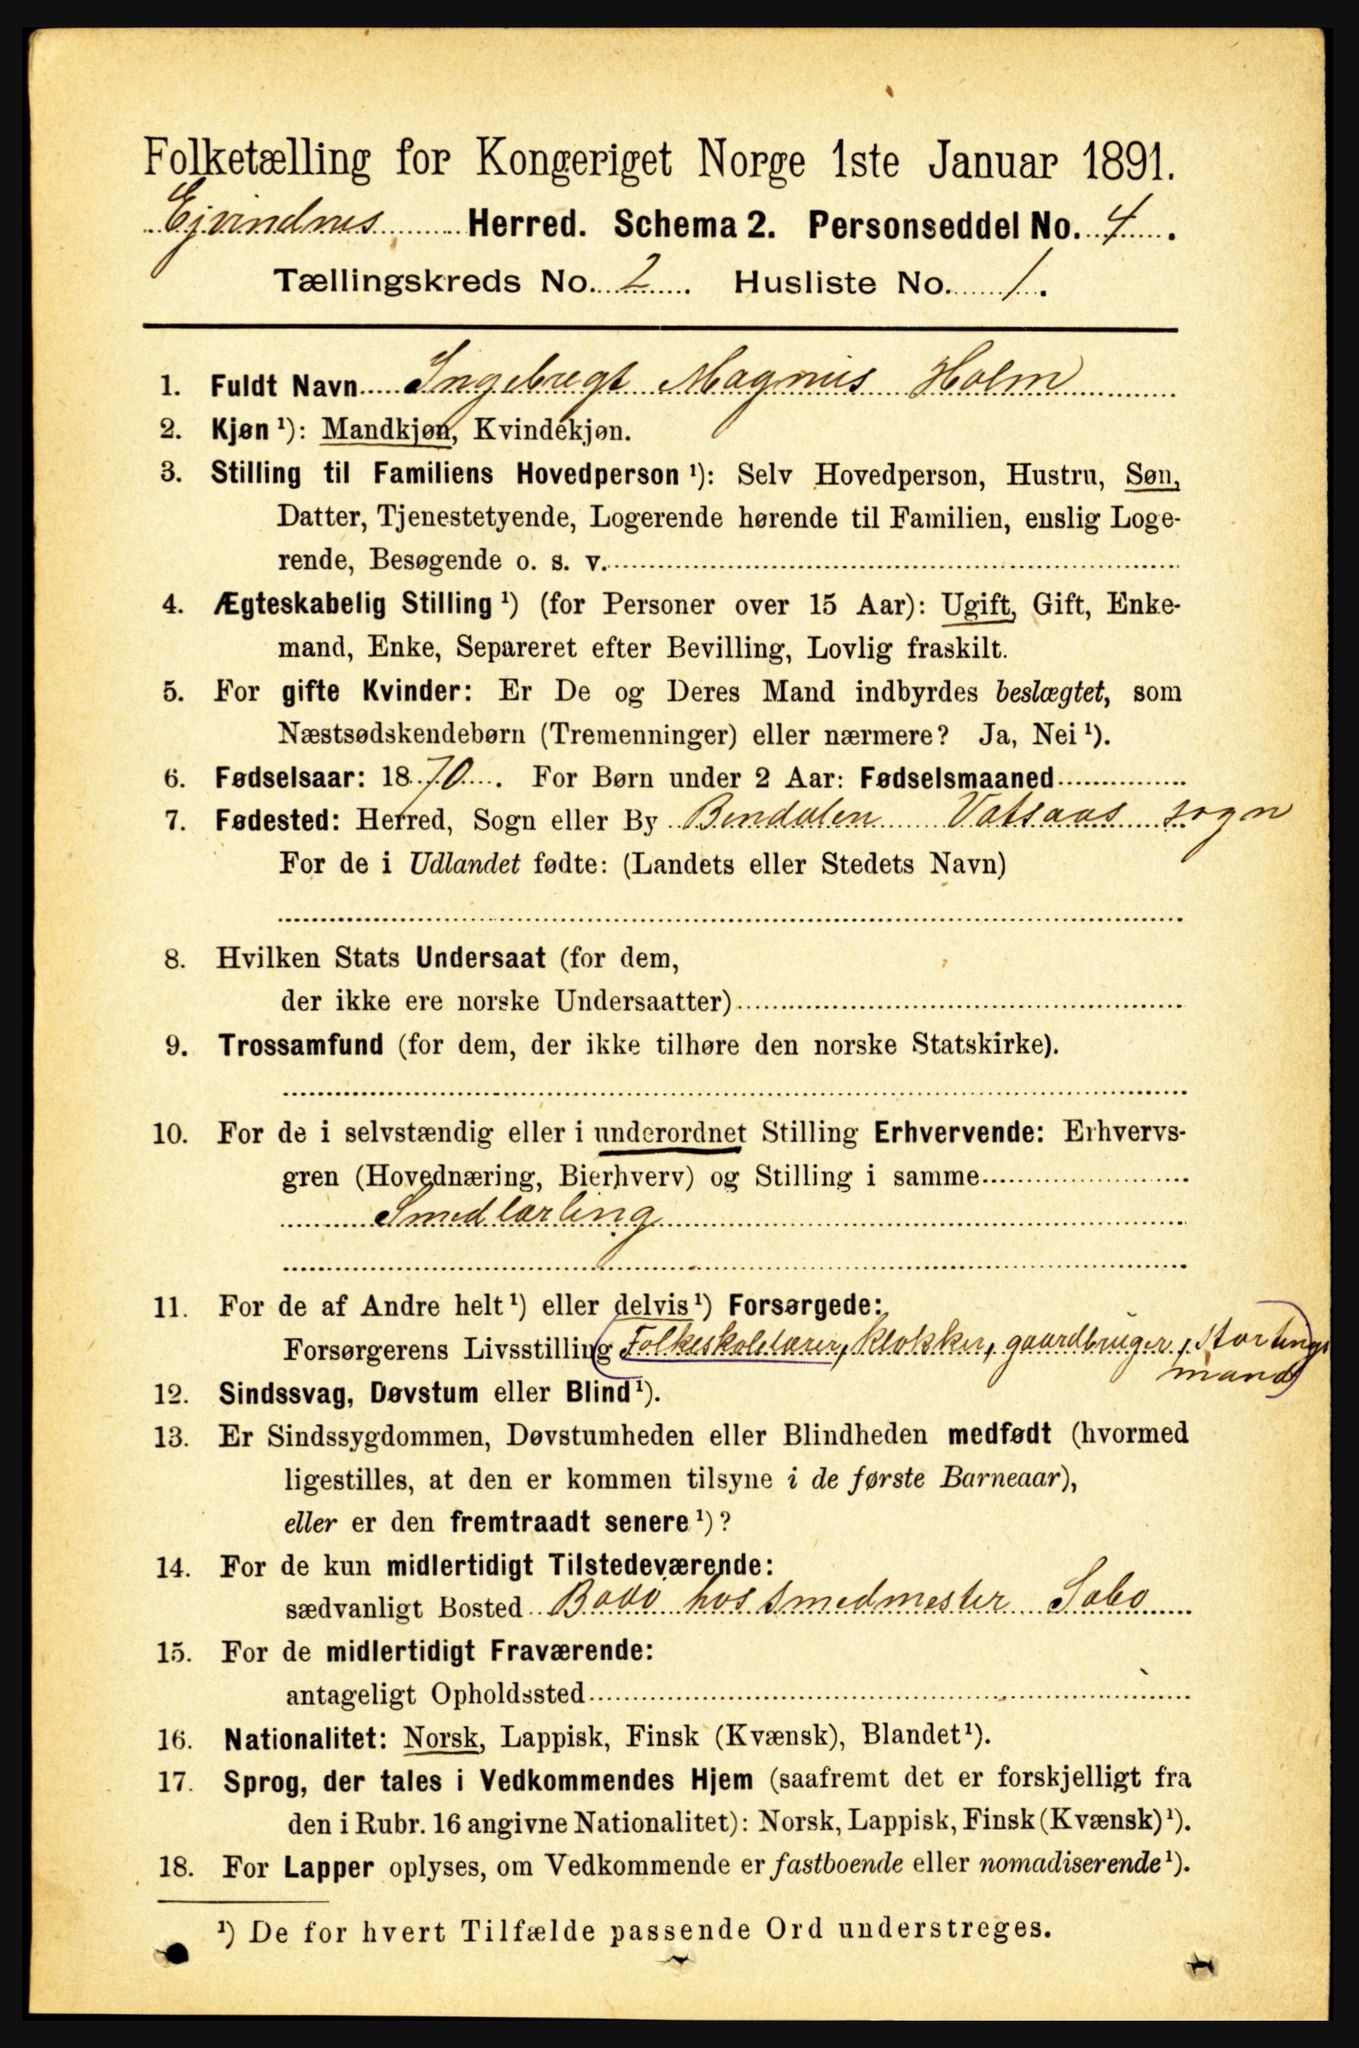 Folketælling for Kongeriget Norge 1ste Januar 1891.
Ejvindnes Herred. Schema 2. Personseddel No. 4.
Tællingskreds No. 2. Husliste No. 1.
1. Fuldt Navn Ingebregt Magnus Holm
2. Kjøn ¹): Mandkjøn, Kvindekjøn.
3. Stilling til Familiens Hovedperson ¹): Selv Hovedperson, Hustru, Søn,
Datter, Tjenestetyende, Logerende hørende til Familien, enslig Loge-
rende, Besøgende o. s. v.
4. Ægteskabelig Stilling ¹) (for Personer over 15 Aar): Ugift, Gift, Enke-
mand, Enke, Separeret efter Bevilling, Lovlig fraskilt.
5. For gifte Kvinder: Er De og Deres Mand indbyrdes beslægtet, som
Næstsødskendebørn (Tremenninger) eller nærmere? Ja, Nei ¹).
6. Fødselsaar: 1870. For Børn under 2 Aar: Fødselsmaaned
7. Fødested: Herred, Sogn eller By Bindalen Vatsaas sogn
For de i Udlandet fødte: (Landets eller Stedets Navn)
8. Hvilken Stats Undersaat (for dem,
der ikke ere norske Undersaatter)
9. Trossamfund (for dem, der ikke tilhøre den norske Statskirke).
10. For de i selvstændig eller i underordnet Stilling Erhvervende: Erhvervs-
gren (Hovednæring, Bierhverv) og Stilling i samme
Smedlærling
11. For de af Andre helt ¹) eller delvis ¹) Forsørgede:
Forsørgerens Livsstilling (Folkeskolelærer, klokker, gaardbruger, Stortings
mand)
12. Sindssvag, Døvstum eller Blind ¹).
13. Er Sindssygdommen, Døvstumheden eller Blindheden medfødt (hvormed
ligestilles, at den er kommen tilsyne i de første Barneaar),
eller er den fremtraadt senere ¹)?
14. For de kun midlertidigt Tilstedeværende:
sædvanligt Bosted Bodø hos Smedmester Sabo
15. For de midlertidigt Fraværende:
antageligt Opholdssted
16. Nationalitet: Norsk, Lappisk, Finsk (Kvænsk), Blandet ¹).
17. Sprog, der tales i Vedkommendes Hjem (saafremt det er forskjelligt fra
den i Rubr. 16 angivne Nationalitet): Norsk, Lappisk, Finsk (Kvænsk) ¹).
18. For Lapper oplyses, om Vedkommende er fastboende eller nomadiserende ¹).
¹) De for hvert Tilfælde passende Ord understreges.